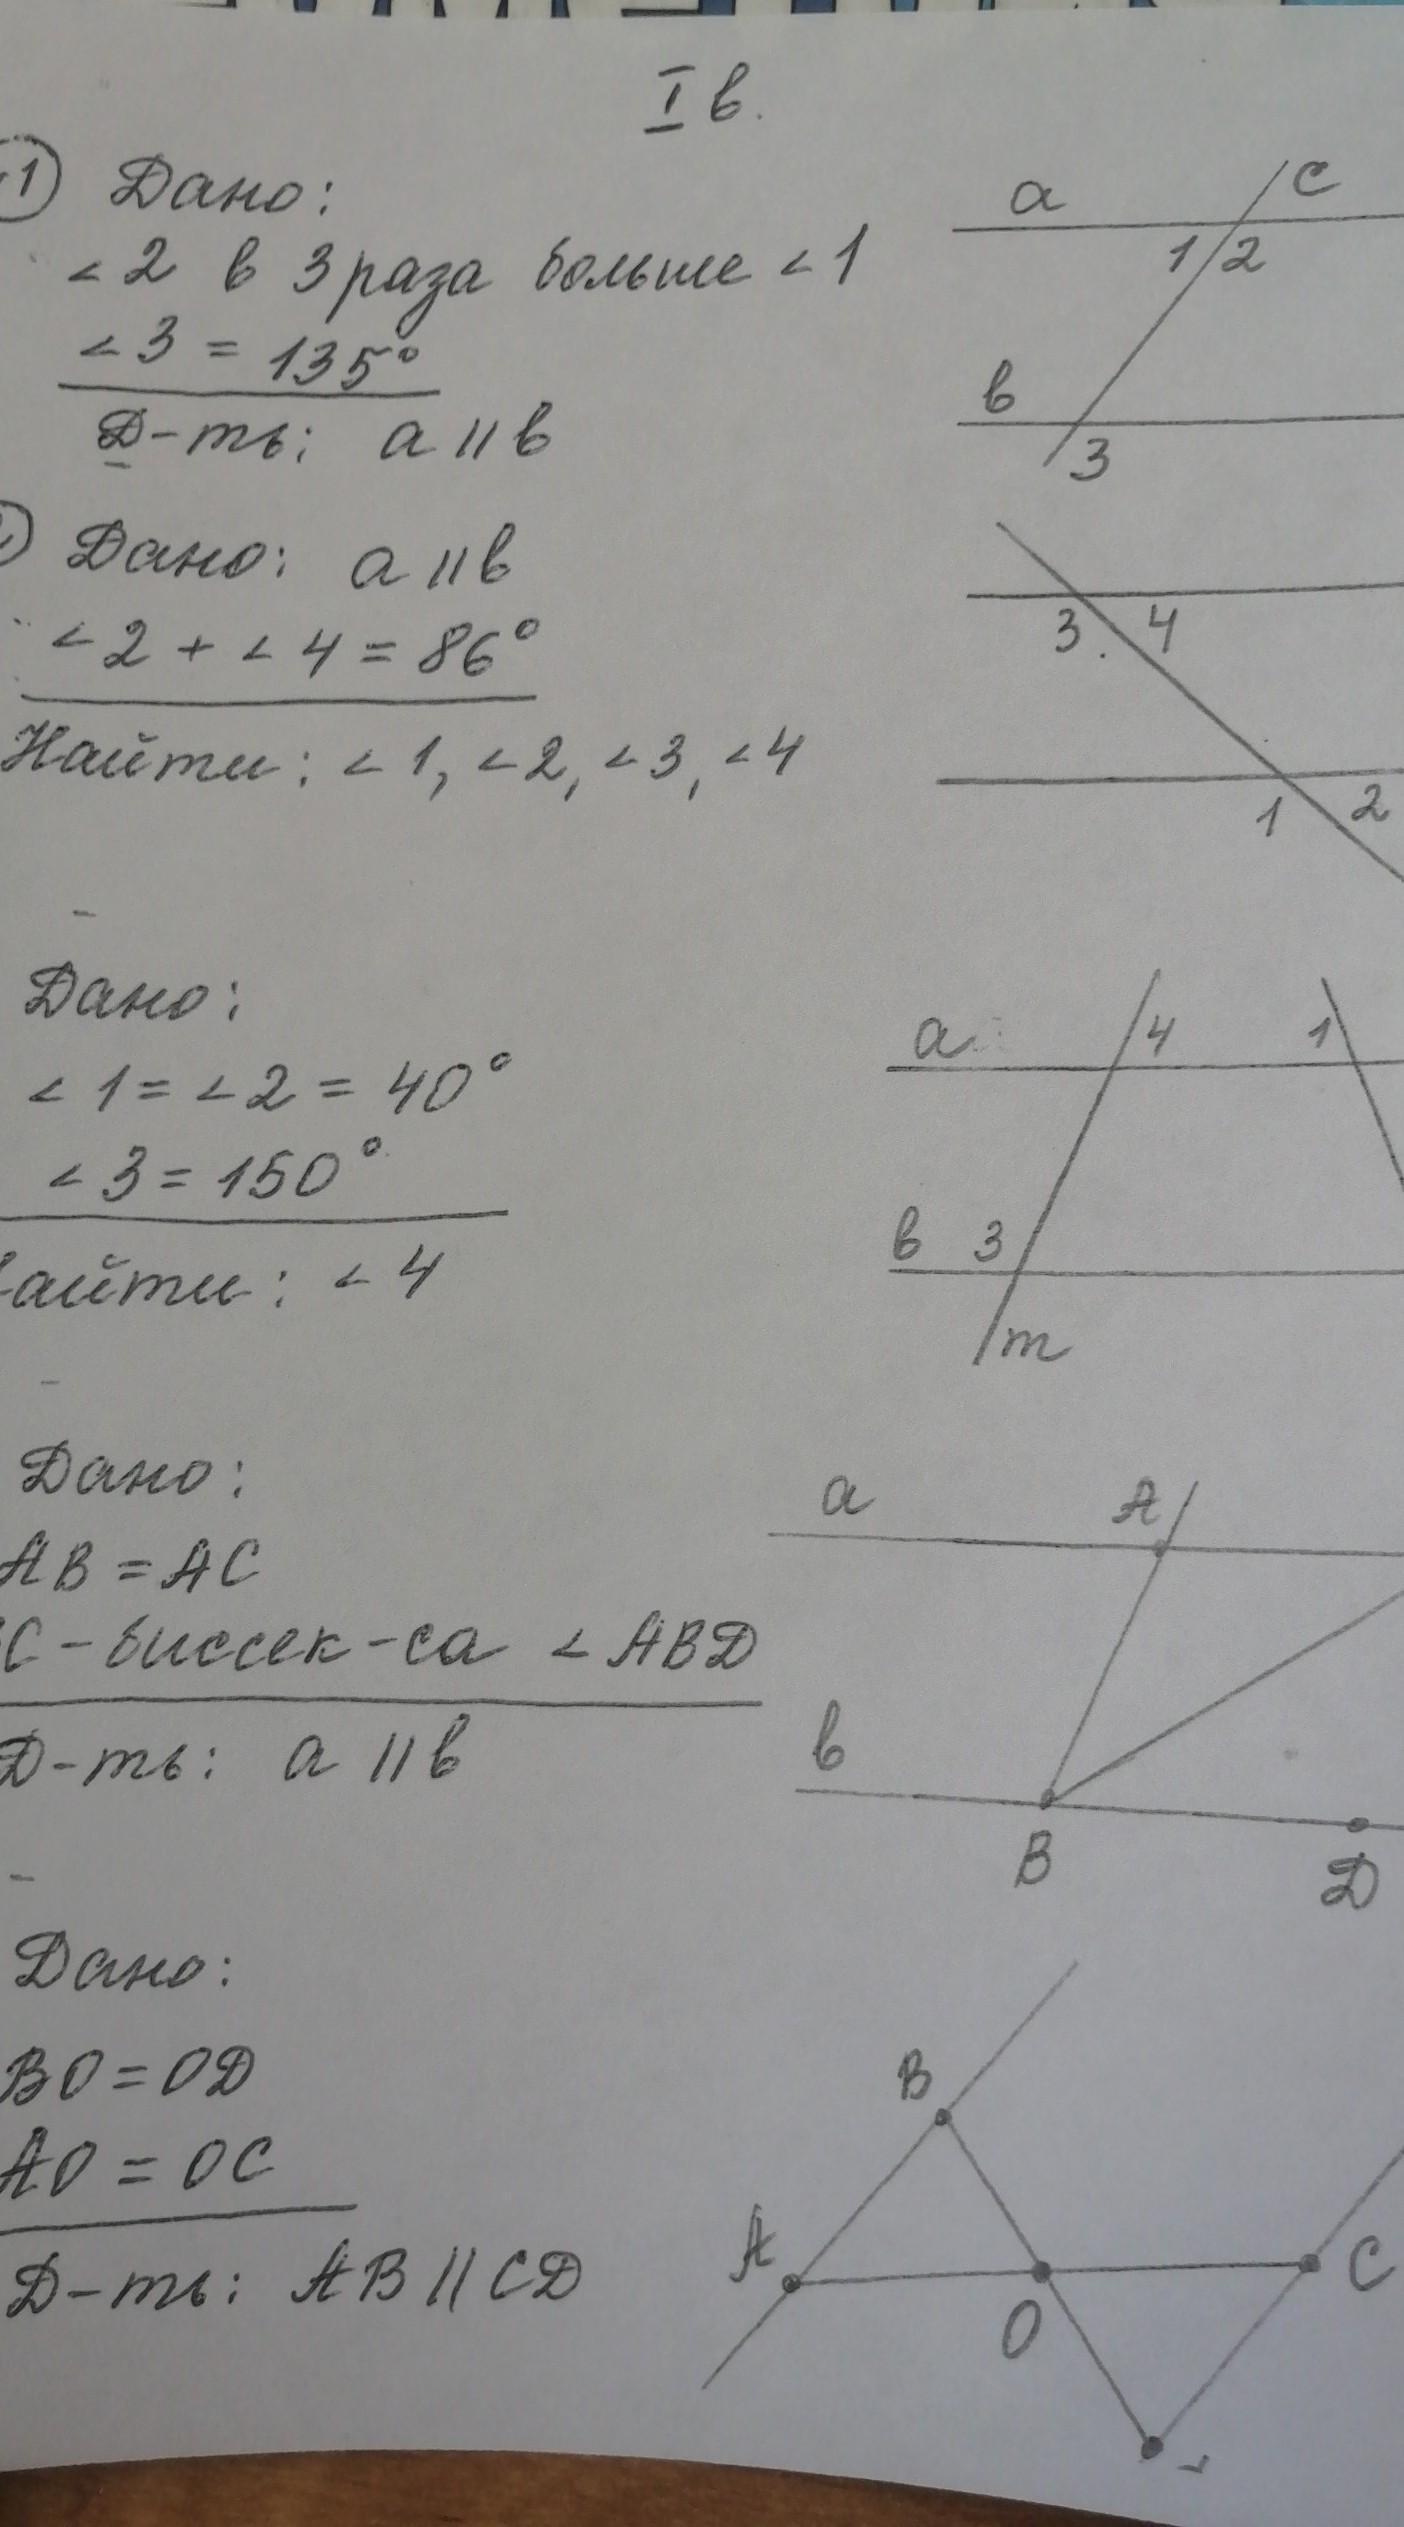 I в.
1 Дано:
∠2 в 3 раза больше ∠1
∠3 = 135°
Д-ть: a || в
a c
1 2
в
3
Дано: a || в
∠2 + ∠4 = 86°
Найти: ∠1, ∠2, ∠3, ∠4
3 4
1 2
Дано:
∠1 = ∠2 = 40°
∠3 = 150°
айти: ∠4
a 4 1
в 3
m
Дано:
AB = AC
C - биссек-са ∠ABD
Д-ть: a || в
a A
в
B D
Дано:
BO = OD
AO = OC
Д-ть: AB || CD
B
A O C